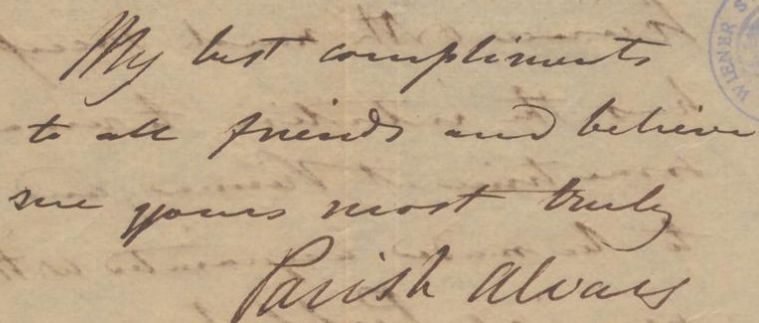 My best compliments
to all friends and believe
me yours most truly
Parish Alvars
WIENER S